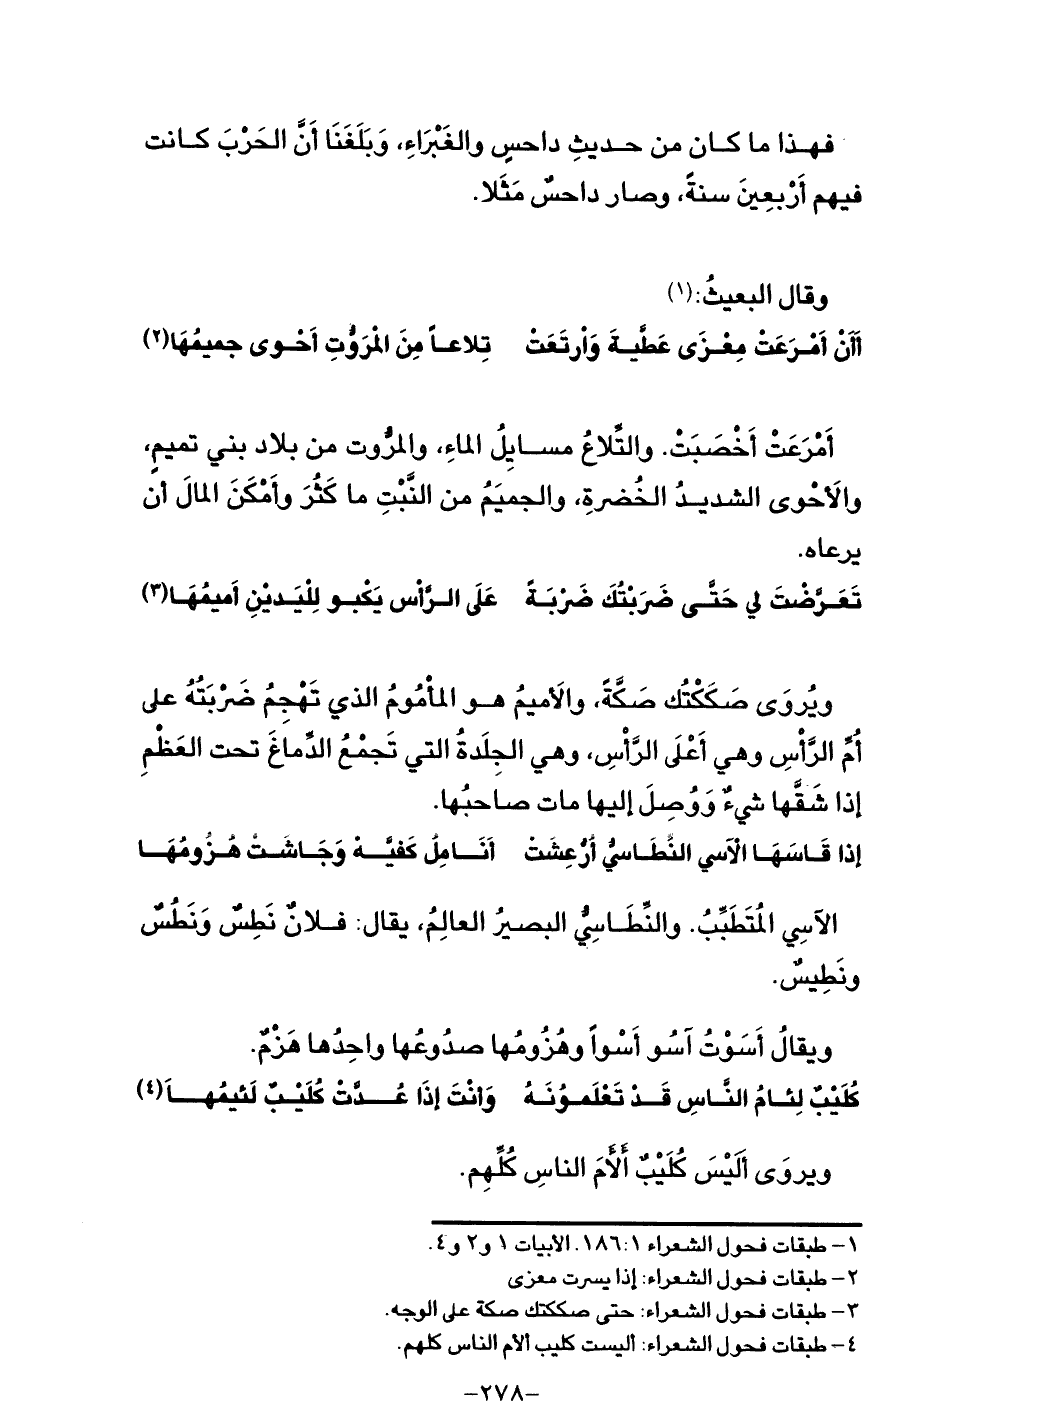 فهذا ما كان من حديثِ داحسٍ والغَبْرَاءِ، وَبَلَغَنَا أَنَّ الحَرْبَ كانت
فيهم أَرْبعِينَ سنةً، وصار داحسٌ مَثَلا.
وقال البعيثُ:(١)
أَأَنْ أَمْرَعَتْ مِعْزَى عَطَّيةَ وَاْرتَعَتْ تِلاعاً مِنَ الْمَرَوُّتِ أَحْوى جميمُهَا(٢)
أَمْرَعَتْ أَخْصَبَتْ. والتِّلاعُ مسايِلُ الماءِ، والمرُّوت من بلاد بني تميمٍ،
والَأحْوى الشديدُ الخُضرةِ، والجميَمُ من النَّبْتِ ما كَثُرَ وأَمْكَنَ المالَ أن
يرعاه.
تَعَرَّضْتَ لي حَتَّى ضَرَبْتُكَ ضَرْبَةً عَلَى الرَّأْس يَكْبو لِلْيَديْنِ أَميمُهَا(٣)
ويُروَى صَكَكْتُك صَكَّةً، والَأميمُ هو المأْمُومُ الذي تَهْجِمُ ضَرْبَتُهُ على
أُمِّ الرَّأْسِ وهي أَعْلَى الرَّأْسِ، وهي الجِلَدةُ التي تَجمْعُ الدِّماغَ تحت العَظْمِ
إذا شَقَّها شيءٌ وَوُصِلَ إليها مات صاحبُها.
إذا قَاسَهَا الْآسي النُّطَاسيُّ أُرْعِشَتْ أَنَامِلُ كَفيَّهْ وَجَاشَتْ هُزُومُهَا
الآسِي الْمُتَطَبِّبُ. والنِّطَاسِيُّ البصيرُ العالِمُ، يقال: فلانٌ نَطِسٌ وَنَطُسٌ
ونَطِيسٌ.
ويقالُ أَسَوْتُ آسُو أَسْواً وهُزُومُها صدُوعُها واحِدُها هَزْمٌ.
كُلَيْبٌ لِئامُ النَّاسِ قَدْ تَعْلَموُنَهُ وَانْتَ إذَا عُدَّتْ كُلَيْبٌ لَئيمُهاَ(٤)
ويروَى أَلَيْسَ كُلَيْبٌ أَلْأَمَ الناسِ كُلِّهِم.
١- طبقات فحول الشعراء ١:١٨٦. الأبيات ١ و٢ و٤.
٢- طبقات فحول الشعراء: إذا يسرت معزى
٣- طبقات فحول الشعراء: حتى صككتك صكة على الوجه.
٤- طبقات فحول الشعراء: أليست كليب ألأم الناس كلهم.
-٢٧٨-